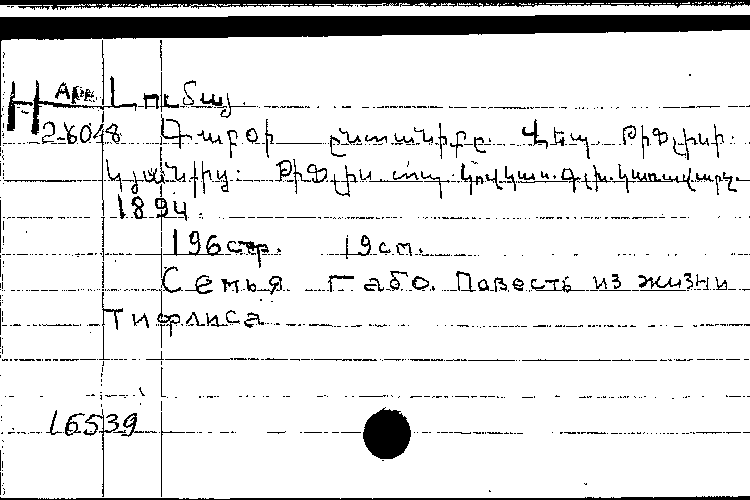 Н Арм. Լումայ.
2-6048 Գաբօի ընտանիքը. Վեպ. Թիֆլիսի.
կյանքից: Թիֆլիս. տպ. կովկաս. գլխ. կառավարչ.
1894.
196 стр. 19 см.
Семья Габо. Повесть из жизни
Тифлиса
16539